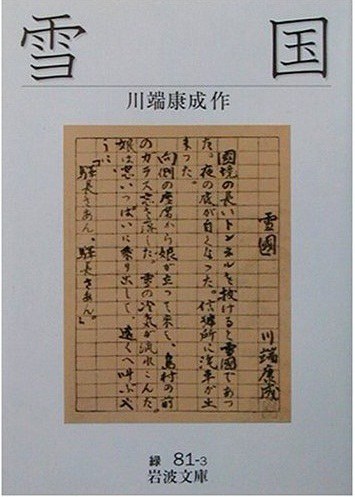 雪国
川端康成作
雪國
川端康成
國境の長いトンネルを抜けると雪國であつ
た。夜の底が白くなつた。信號所に汽車が止
まつた。
向側の座席から娘が立つて来て、島村の前
のガラス窓を落した。雪の冷気が流れこんだ。
娘は窓いつぱいに乗り出して、遠くへ叫ぶや
うに、
「駅長さあん、駅長さあん。」
緑 81-3
岩波文庫